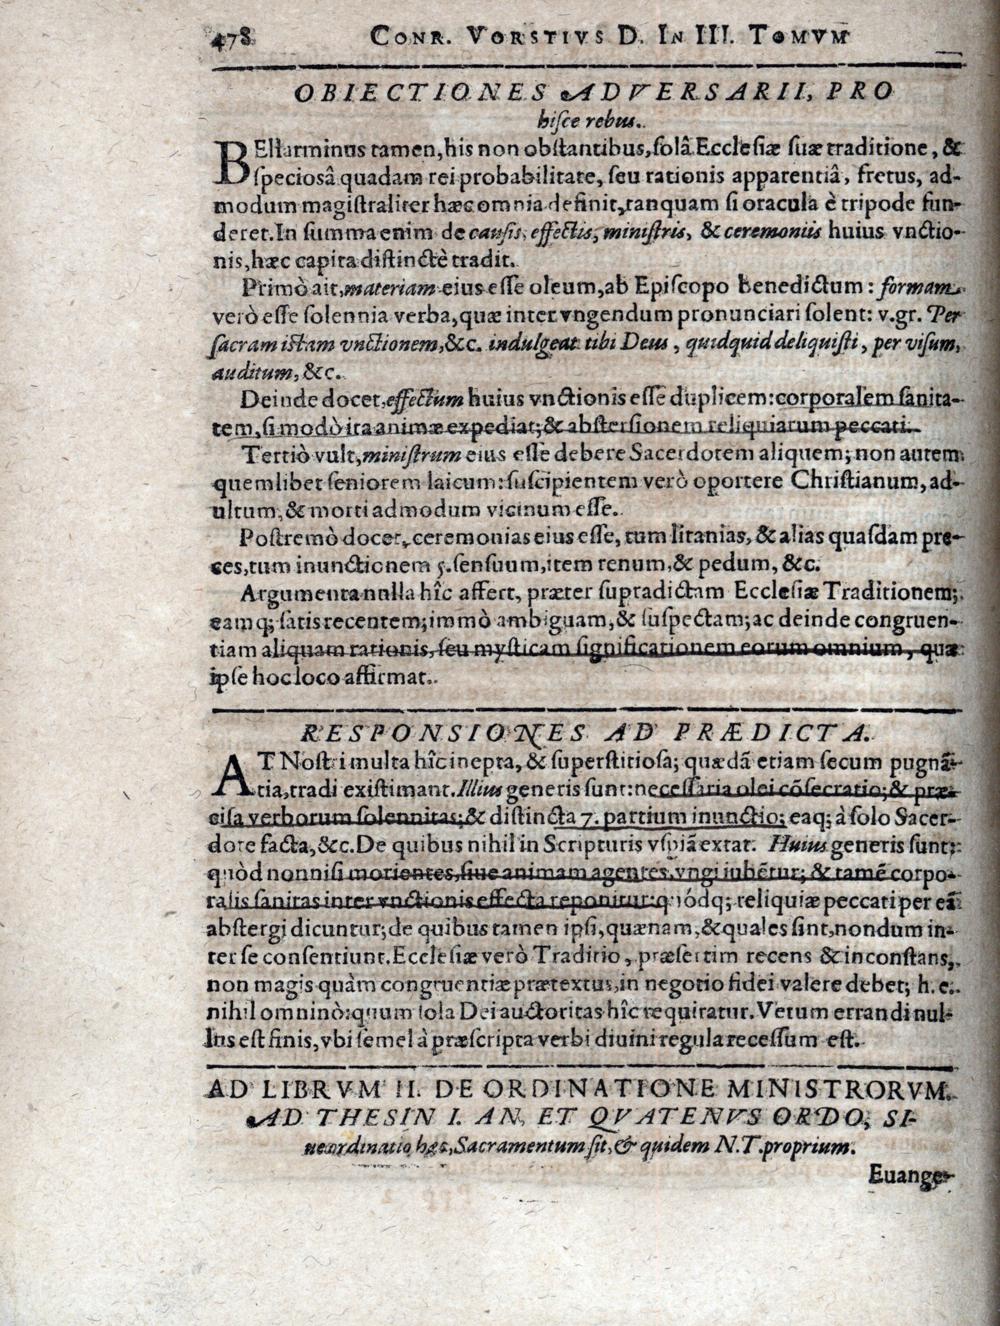 478 CONR. VORSTIVS D. IN III. TOMVM
OBIECTIONES ADVERSARII, PRO
hisce rebus.
BEllarminus tamen, his non obstantibus, solâ Ecclesiæ suæ traditione, &
speciosâ quadam rei probabilitate, seu rationis apparentiâ, fretus, ad-
modum magistraliter hæc omnia definit, tanquam si oracula è tripode fun-
deret. In summa enim de causis, effectis, ministris, & ceremoniis huius vnctio-
nis, hæc capita distinctè tradit.
Primò ait, materiam eius esse oleum, ab Episcopo benedictum: formam
verò esse solennia verba, quæ inter vngendum pronunciari solent: v.gr. Per
sacram istam vnctionem, &c. indulgeat tibi Deus, quidquid deliquisti, per visum,
auditum, &c.
Deinde docet, effectum huius vnctionis esse duplicem: corporalem sanita-
tem, si modò ita animæ expediat; & abstersionem reliquiarum peccati.
Tertiò vult, ministrum eius esse debere Sacerdotem aliquem; non autem
quemlibet seniorem laicum: suscipientem verò oportere Christianum, ad-
ultum, & morti admodum vicinum esse.
Postremò docet, ceremonias eius esse, tum litanias, & alias quasdam pre-
ces, tum inunctionem 5. sensuum, item renum, & pedum, &c.
Argumenta nulla hîc affert, præter supradictam Ecclesiæ Traditionem;
eamq; satis recentem; immò ambiguam, & suspectam; ac deinde congruen-
tiam aliquam rationis, seu mysticam significationem eorum omnium, quæ
ipse hoc loco affirmat.
RESPONSIONES AD PRÆDICTA.
AT Nostri multa hîc inepta, & superstitiosa; quædā etiam secum pugnā-
tia, tradi existimant. Illius generis sunt: necessaria olei cōsecratio; & præ-
cisa verborum solennitas; & distincta 7. partium inunctio; eaq; à solo Sacer-
dote facta, &c. De quibus nihil in Scripturis vspiā extat. Huius generis sunt;
quòd nonnisi morientes, siue animam agentes, vngi iubētur; & tamē corpo-
ralis sanitas inter vnctionis effecta reponitur: quódq; reliquiæ peccati per eā
abstergi dicuntur; de quibus tamen ipsi, quænam, & quales sint, nondum in-
ter se consentiunt. Ecclesiæ verò Traditio, præsertim recens & inconstans,
non magis quàm congruentiæ prætextus, in negotio fidei valere debet; h.e.
nihil omninò: quum sola Dei auctoritas hîc requiratur. Verum errandi nul-
lus est finis, vbi semel à præscripta verbi diuini regula recessum est.
AD LIBRVM II. DE ORDINATIONE MINISTRORVM.
AD THESIN I. AN, ET QVATENVS ORDO, SI-
ue ordinatio hęc, Sacramentum sit, & quidem N.T. proprium.
Euange-